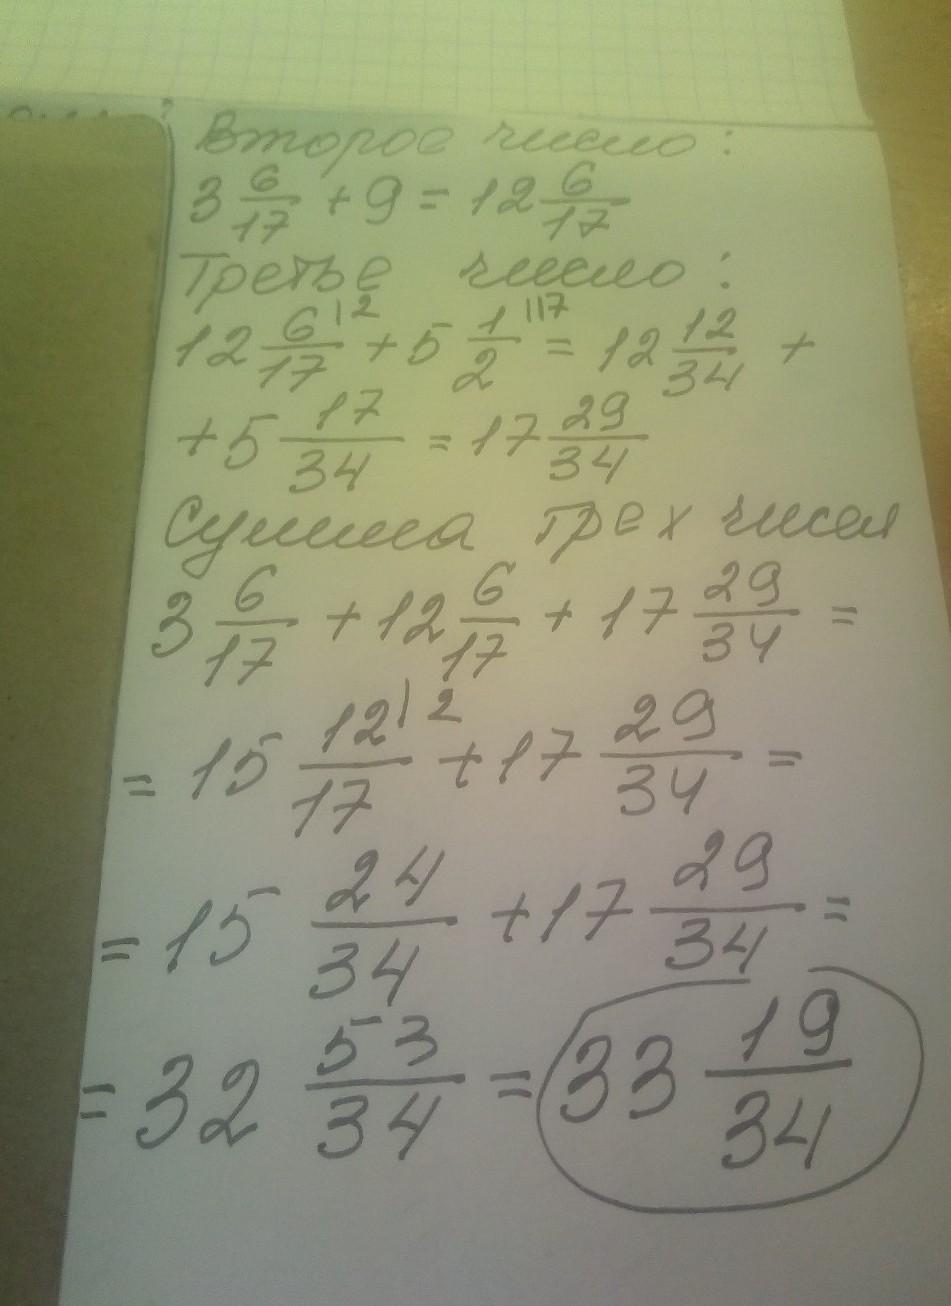 Второе число:
3 6/17 + 9 = 12 6/17
Третье число:
12 6|2/17 + 5 1|17/2 = 12 12/34 +
+ 5 17/34 = 17 29/34
Сумма трех чисел
3 6/17 + 12 6/17 + 17 29/34 =
= 15 12|2/17 + 17 29/34 =
= 15 24/34 + 17 29/34 =
= 32 53/34 = 33 19/34